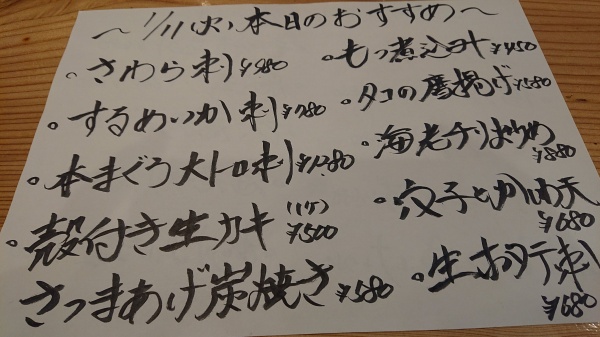 ～1/11(火)本日のおすすめ～
。さわら刺¥980
。するめいか刺¥780
。本まぐろ大トロ刺¥1,280
。殻付き生カキ(1ケ)¥500
さつまあげ炭焼き¥580
。もつ煮込み¥450
。タコの唐揚げ¥580
。海老チリ炒め¥880
。穴子とかぶ天¥680
。生ホタテ刺¥680